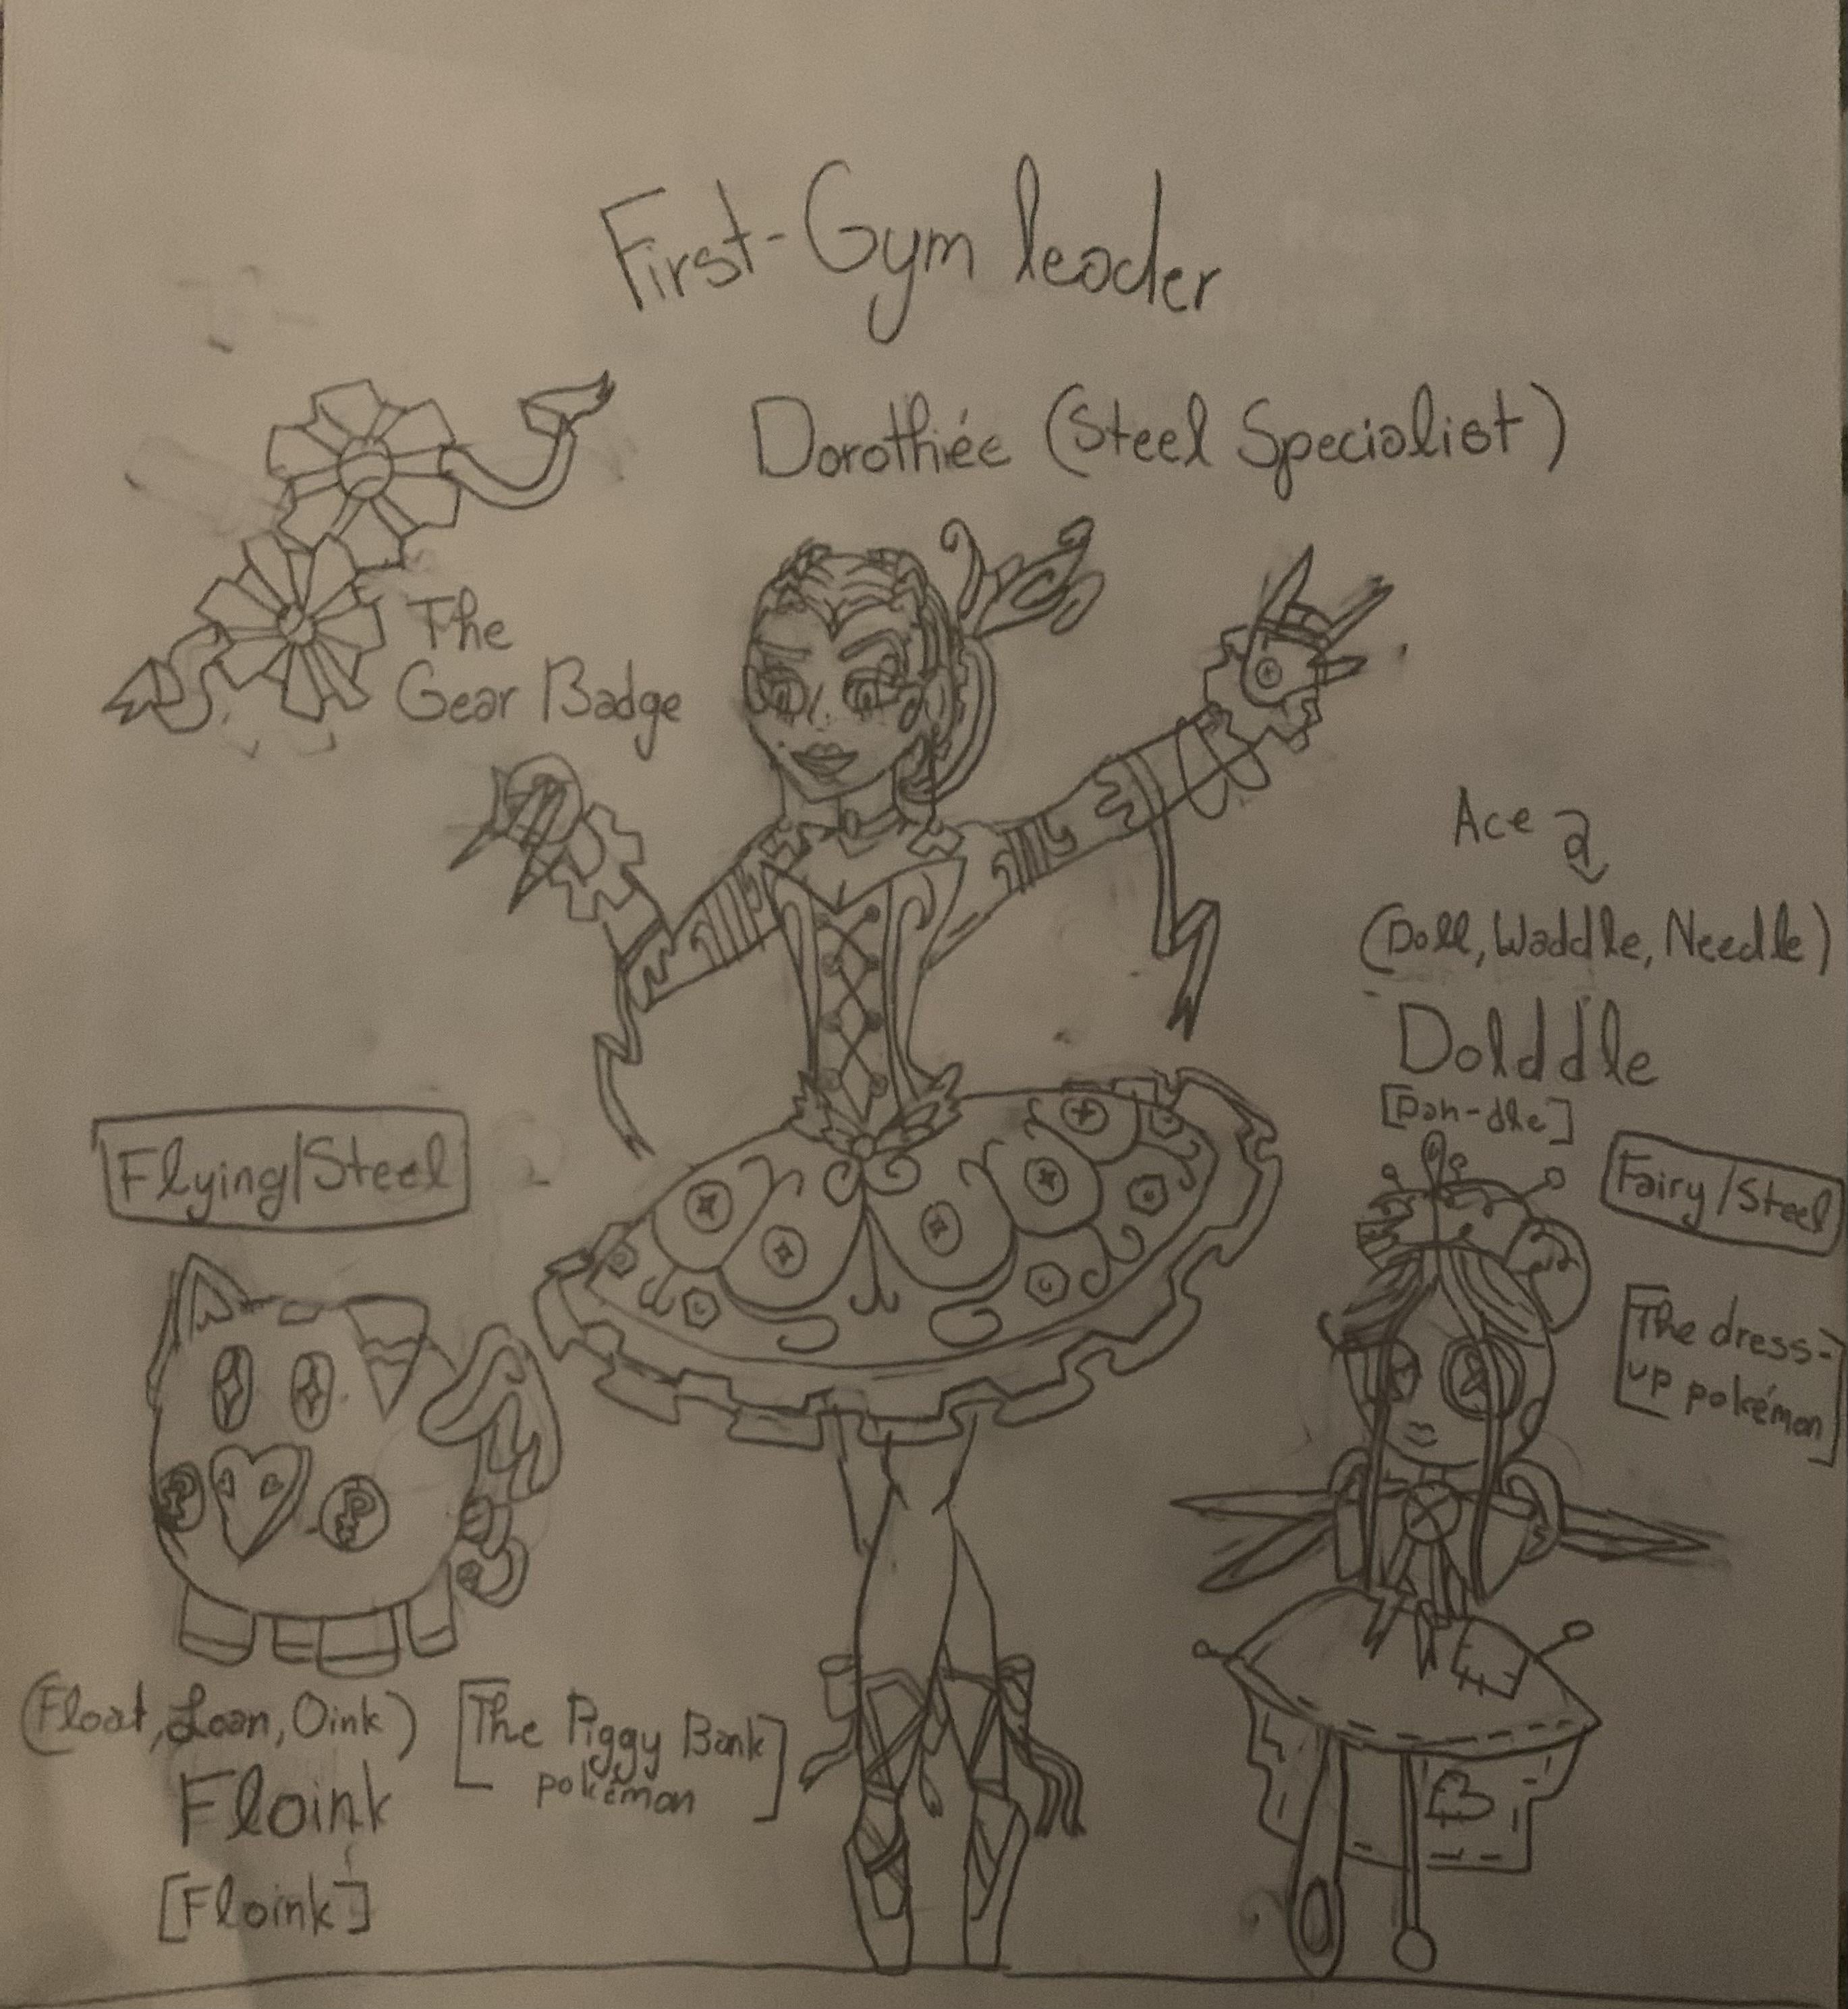 First-Gym leader
Dorothiée (Steel Specialist)
The
Gear Badge
Ace
(Doll, Waddle, Needle)
Dolddle
[Dah-dle]
Fairy/Steel
[The dress-
up pokémon]
Flying/Steel
(Float, Loan, Oink)
Floink
[Floink]
[The Piggy Bank
pokémon]